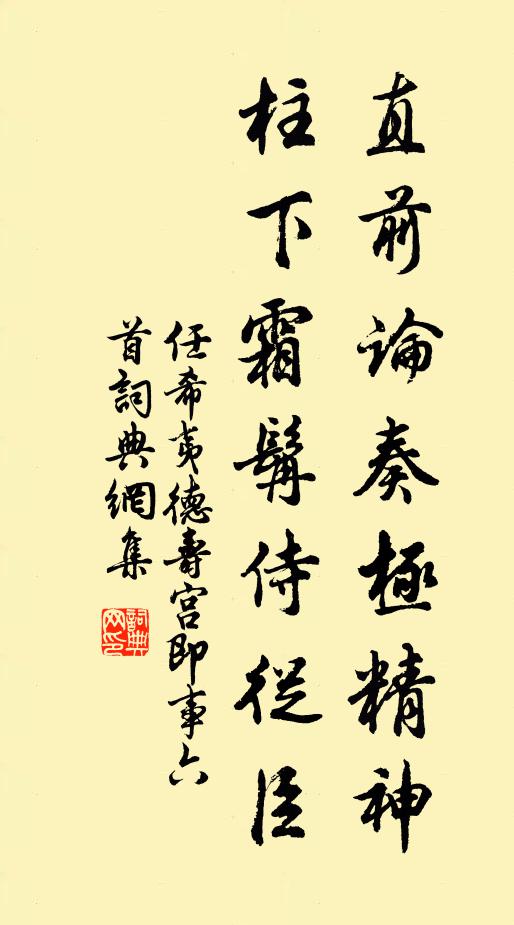 直前論奏極精神
柱下霜鬢侍從臣
任希夷德壽宮即事六
首詞典網集
詞典
网印